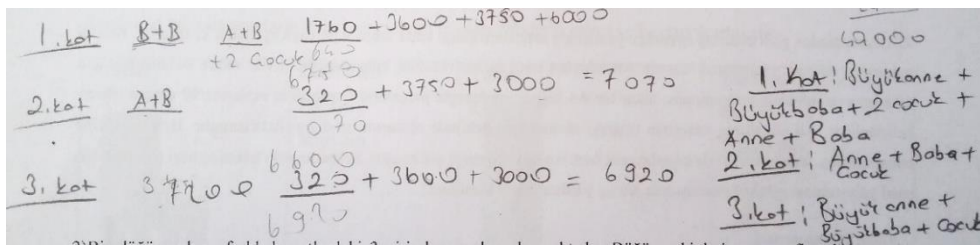 1.kat B+B A+B 1760 + 3600 + 3750 + 6000
+2 Çocuk 640
6750
2.kat A+B 320 + 3750 + 3000 = 7070
070
6600
3.kat 320 + 3600 + 3000 = 6920
6920
42000
1.Kat: Büyükanne +
Büyükbaba + 2 çocuk +
Anne + Baba
2.kat: Anne + Baba +
Çocuk
3.kat: Büyük anne +
Büyükbaba + Çocuk